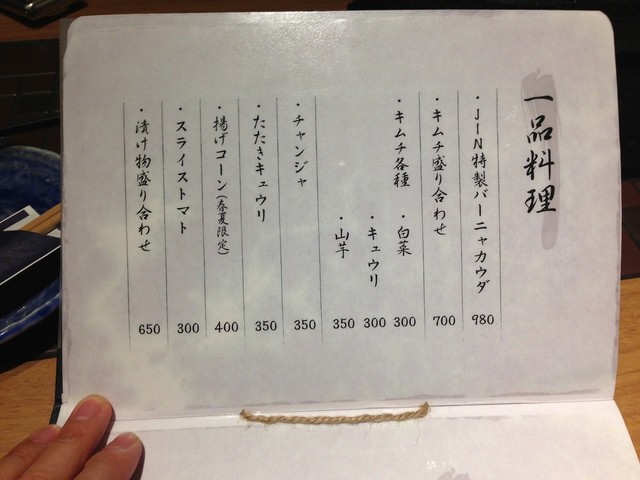 一品料理
・JIN特製バーニャカウダ 980
・キムチ盛り合わせ 700
・キムチ各種 ・白菜 300
・キュウリ 300
・山芋 350
・チャンジャ 350
・たたきキュウリ 350
・揚げコーン(春夏限定) 400
・スライストマト 300
・漬け物盛り合わせ 650